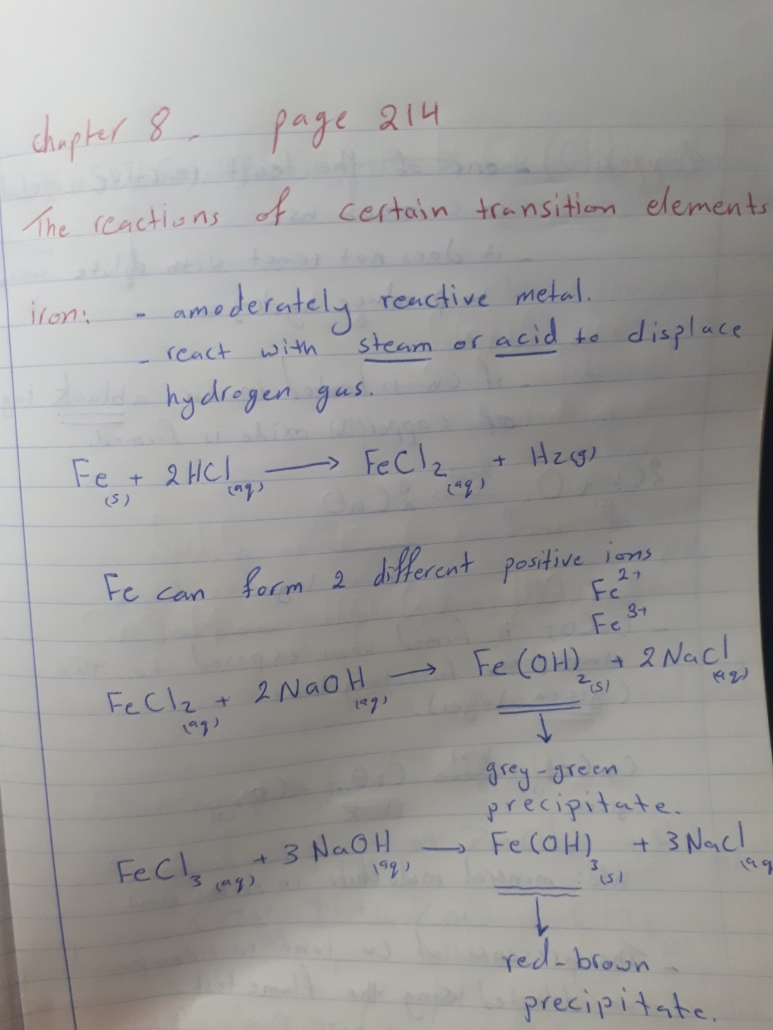 chapter 8 - page 214
The reactions of certain transition elements
iron: - amoderately reactive metal.
- react with steam or acid to displace
hydrogen gas.
Fe(s) + 2HCl(aq) → FeCl2(aq) + H2(g)
Fe can form 2 different positive ions
Fe2+
Fe3+
FeCl2(aq) + 2NaOH(aq) → Fe(OH)2(s) + 2NaCl(aq)
↓
grey-green
precipitate.
FeCl3(aq) + 3NaOH(aq) → Fe(OH)3(s) + 3NaCl(aq
↓
red-brown
precipitate.